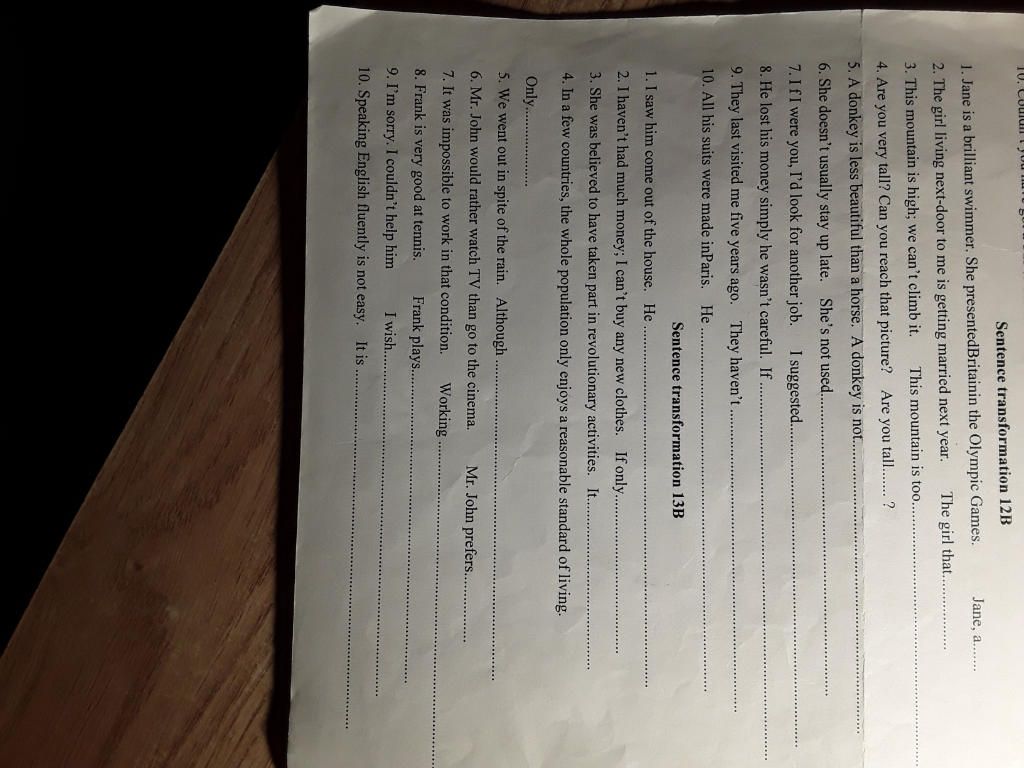 Sentence transformation 12B
1. Jane is a brilliant swimmer. She presentedBritainin the Olympic Games. Jane, a......
2. The girl living next-door to me is getting married next year. The girl that..................
3. This mountain is high; we can't climb it. This mountain is too..................................................
4. Are you very tall? Can you reach that picture? Are you tall...... ?
5. A donkey is less beautiful than a horse. A donkey is not..........................................................
6. She doesn't usually stay up late. She's not used..........................................................
7. I f I were you, I'd look for another job. I suggested..........................................................
8. He lost his money simply he wasn't careful. If..........................................................
9. They last visited me five years ago. They haven't..........................................................
10. All his suits were made inParis. He ..........................................................
Sentence transformation 13B
1. I saw him come out of the house. He ..........................................................
2. I haven't had much money; I can't buy any new clothes. If only..................................
3. She was believed to have taken part in revolutionary activities. It..................................
4. In a few countries, the whole population only enjoys a reasonable standard of living.
Only....................
5. We went out in spite of the rain. Although ..........................................................
6. Mr. John would rather watch TV than go to the cinema. Mr. John prefers..................
7. It was impossible to work in that condition. Working ..........................................................
8. Frank is very good at tennis. Frank plays..........................................................
9. I'm sorry. I couldn't help him I wish..........................................................
10. Speaking English fluently is not easy. It is ..........................................................